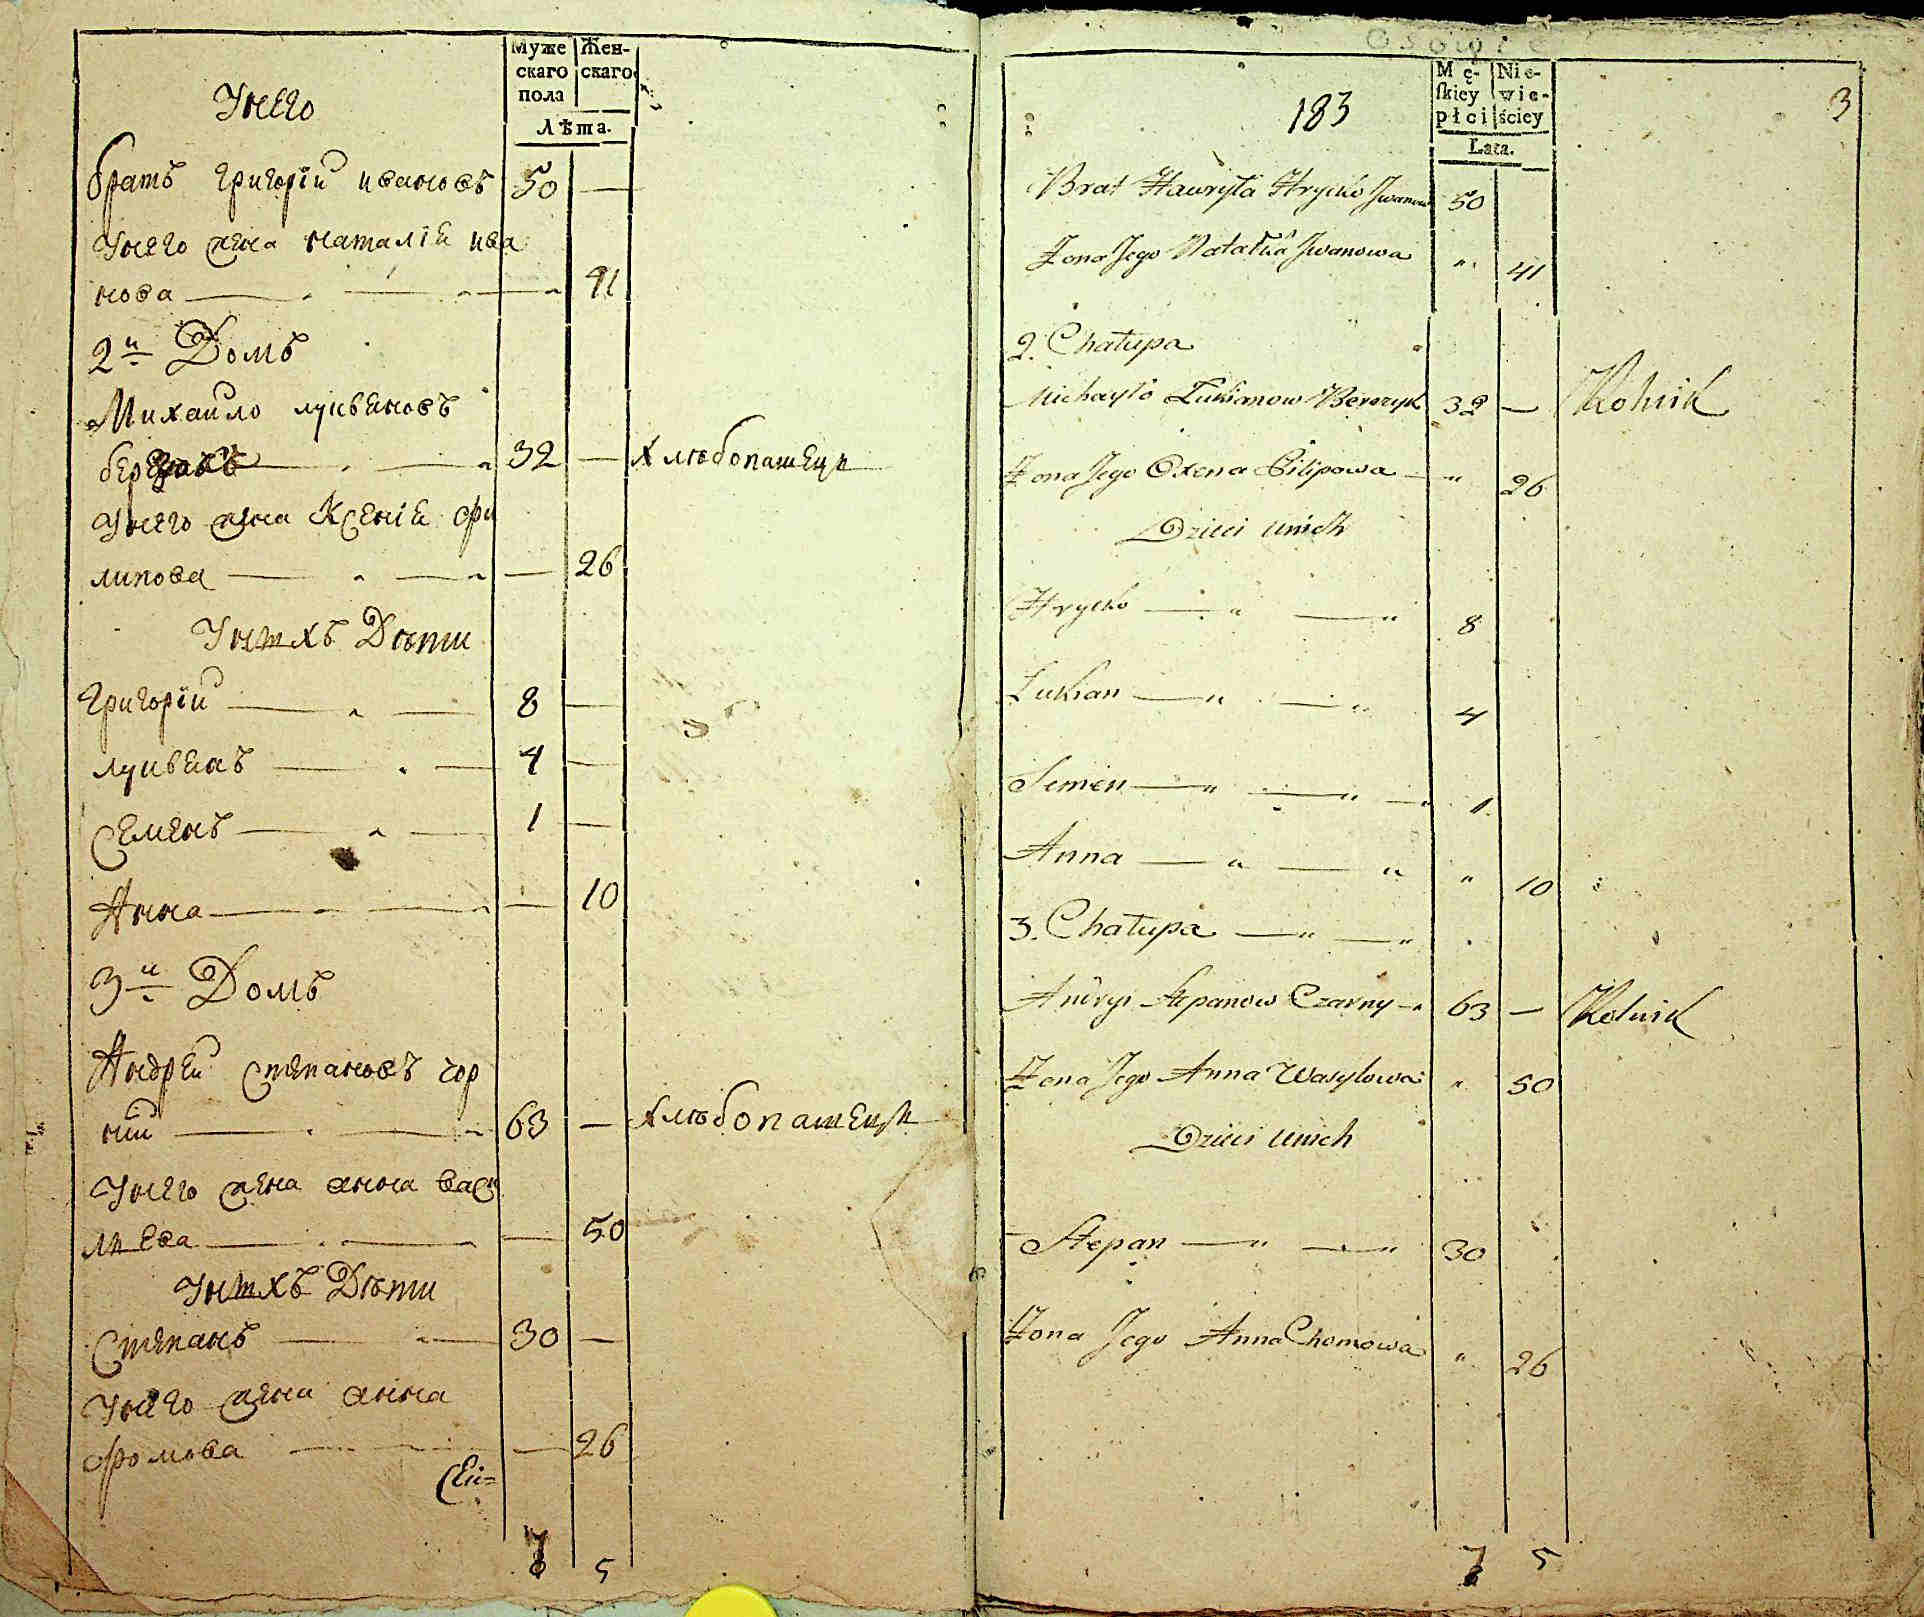 Муже Жен-
скаго скаго
пола
Лѣта.
Унего
братъ григорїи ивановъ 50 —
Унего жена наталїя ива
нова — — — 41
2й Домъ
Михаило лукъяновъ
32 — хлѣбопашецъ
Унего жена Ксенїя фи
липова — — — 26
Унихъ Дѣти
григорїи — — 8 —
лукьянъ — — 4 —
Семенъ — — 1 —
Анна — — — 10
3й Домъ
Андреи Степановъ чор
нїи — — 63 — хлѣбопашецъ
Унего жена анна васи
лиева — — — 50
Унихъ Дѣти
Степанъ — — 30 —
Унего жена анна
фомова — — — 26
7 5
183
3
Mę- Nie-
ſkiey wie-
płci ściey
Lata.
Brat Hawryła Hrycko Jwanow 50
Zona Jego Natalia Jwanowa " 41
2. Chałupa
Michayło Łukianow 32 — Rolnik
Zona Jego Oxena Pilipowa — " 26
Dzieci unich
Hrycko — " — " 8
Łukian — " — " 4
Semen — " — " — " 1
Anna — " — " " 10
3. Chałupa — " — "
Andryi Stepanow Czarny — " 63 — Rolnik
Zona Jego Anna Wasylowa " 50
Dzieci unich
Stepan — " — " 30
Zona Jego Anna Chomowa " 26
7 5